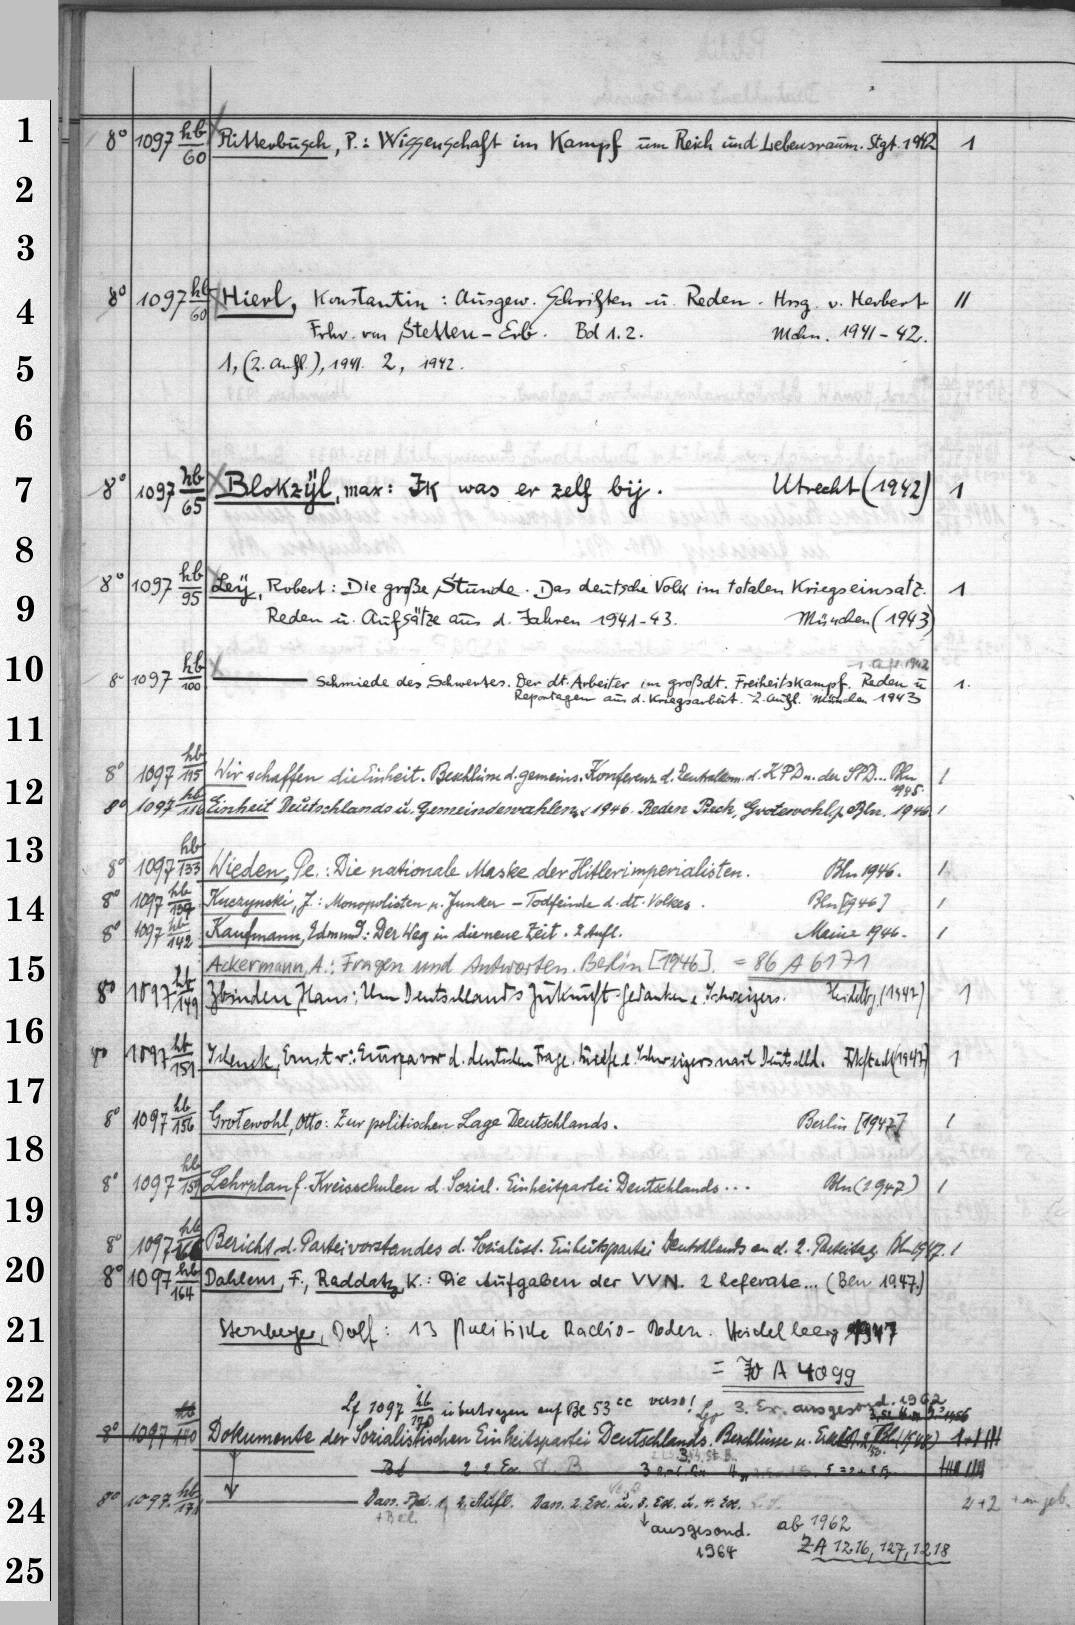 1
8° 1097 hb/60 Ritterbusch, P.: Wissenschaft im Kampf um Reich und Lebensraum. Stgt. 1942 1
2
3
4
8° 1097 hb/60 Hierl, Konstantin: Ausgew. Schriften u. Reden. Hrsg. v. Herbert II
Frhr. von Stetten-Erb. Bd 1.2. Mchn. 1941-42.
5
1, (2. Aufl.), 1941. 2, 1942.
6
7
8° 1097 hb/65 Blokzijl, max: Ik was er zelf bij. Utrecht (1942) 1
8
8° 1097 hb/95 Ley, Robert: Die große Stunde. Das deutsche Volk im totalen Kriegseinsatz. 1
9
Reden u. Aufsätze aus d. Jahren 1941-43. München (1943)
10
1. Aufl. 1942
8° 1097 hb/100 Schmiede des Schwertes. Der dt. Arbeiter im großdt. Freiheitskampf. Reden u 1.
Reportagen aus d. Kriegsarbeit. 2. Aufl. München 1943
11
8° 1097 hb/115 Wir schaffen die Einheit. Beschlüsse d. gemeins. Konferenz d. Zentralkom. d. KPD u. der SPD... Bln 1945. 1
12
8° 1097 hb/116 Einheit Deutschlands u. Gemeindewahlen 1946. Reden Pieck, Grotewohl, Bln. 1946. 1
13
8° 1097 hb/133 Wieden, Pe.: Die nationale Maske der Hitlerimperialisten. Bln 1946. 1
14
8° 1097 hb/139 Kuczynski, J.: Monopolisten u. Junker - Todfeinde d. dt. Volkes. Bln [1946] 1
8° 1097 hb/142 Kaufmann, Edmund: Der Weg in die neue Zeit. 2. Aufl. Mainz 1946. 1
15
Ackermann, A.: Fragen und Antworten. Berlin [1946]. = 86 A 6171
8° 1097 hb/149 Zbinden, Hans: Um Deutschlands Zukunft. Gedanken e. Schweizers. Heidelbg. (1947) 1
16
8° 1097 hb/151 Schenck, Ernst v.: Europa vor d. deutschen Frage. Briefe e. Schweizers nach Deutschld. (1947) 1
17
8° 1097 hb/156 Grotewohl, Otto: Zur politischen Lage Deutschlands. Berlin [1947] 1
18
8° 1097 hb/159 Lehrplan f. Kreisschulen d. Sozial. Einheitspartei Deutschlands... Bln (1947) 1
19
8° 1097 hb Bericht d. Parteivorstandes d. Sozialist. Einheitspartei Deutschlands an d. 2. Parteitag. Bln 1947. 1
20
8° 1097 hb/164 Dahlem, F., Raddatz, K.: Die Aufgaben der VVN. 2 Referate... (Ben 1947.)
21
Sternberger, Dolf: 13 politische Radio-Reden. Heidelberg 1947
= 70 A 4099
22
Lf 1097 hb/170 übertragen auf Bl 53 cc verso! 3. Ex. ausgesond. 1962
23
8° 1097 hb/170 Dokumente der Sozialistischen Einheitspartei Deutschlands. Beschlüsse u. (1948)
Bd 2 2 Ex St. B
24
8° 1097. hb/171 Dass. Bd. 1 2. Aufl. Dass. 2. Ex. u. 3. Ex. u. 4. Ex. 2+2
ausgesond. 1964
ab 1962
ZA 1216, 127, 1218
25